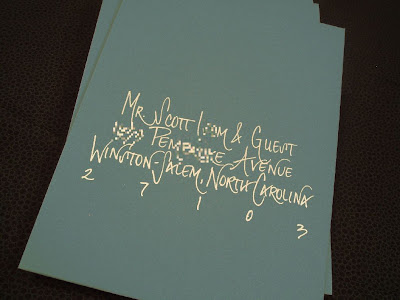 Mr. Scott & Guest
Avenue
Winston-Salem, North Carolina
27103